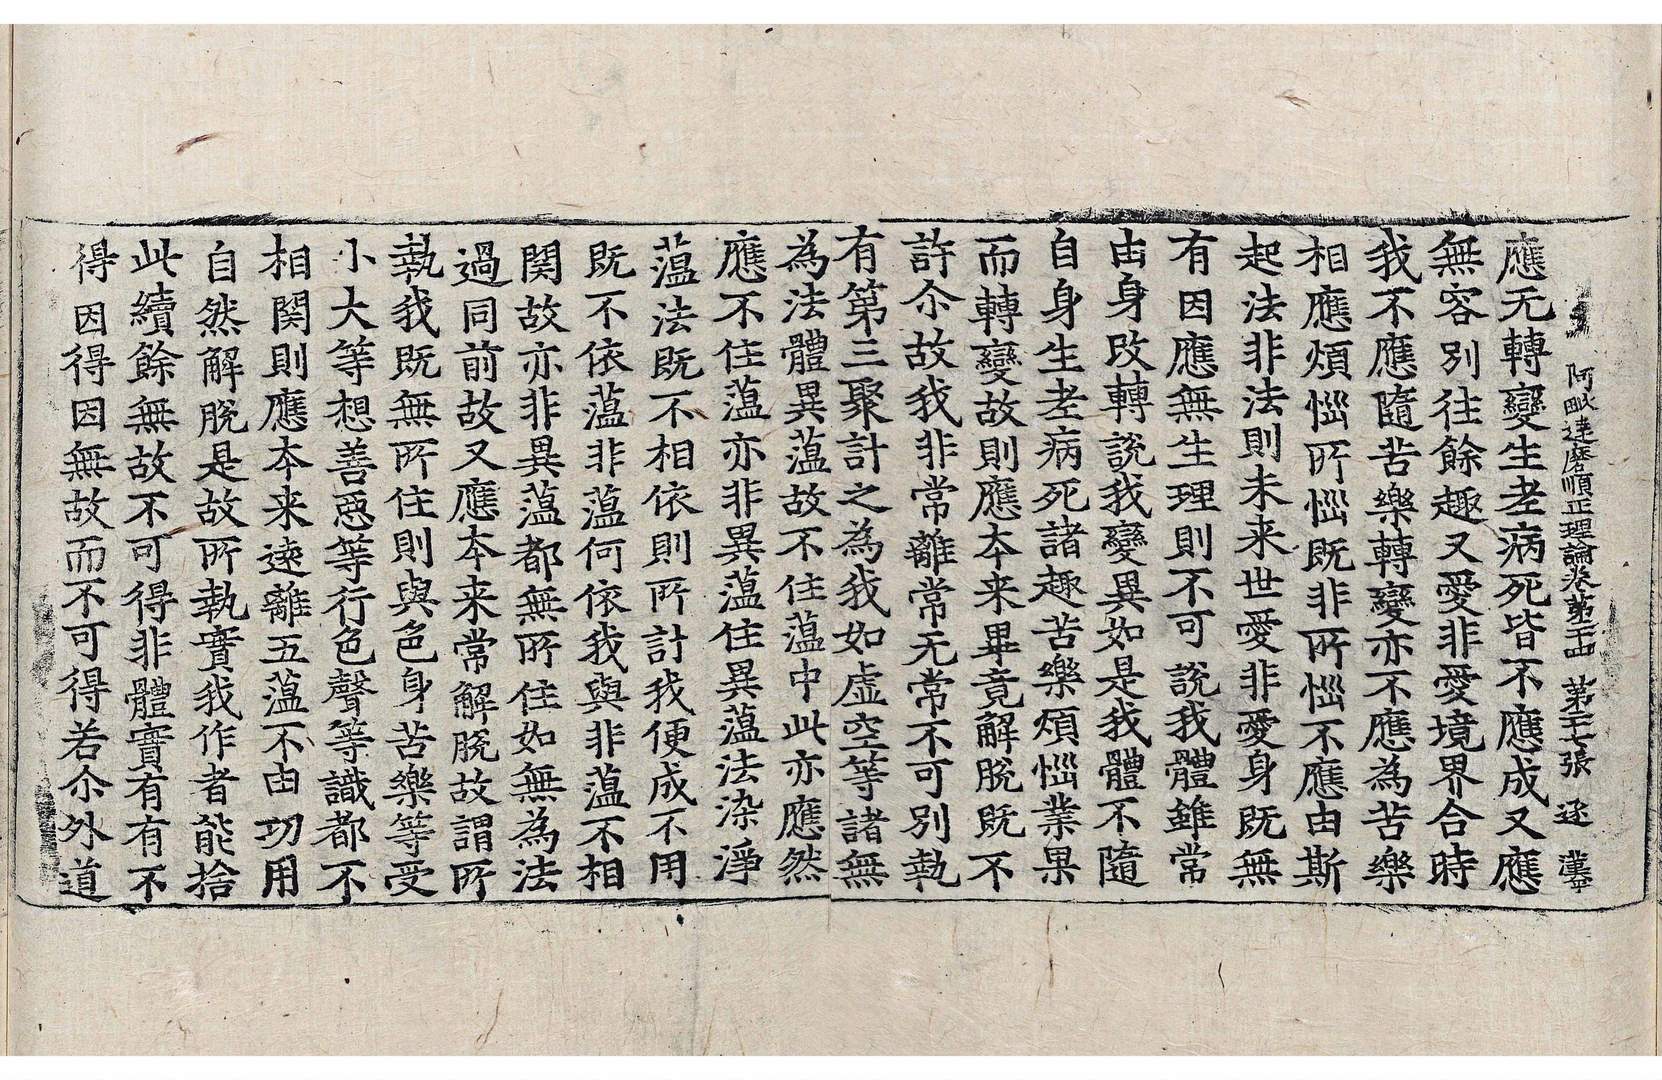 阿毗達磨順正理論卷第五十四 第二十七張 逐 漢寧
應无轉變生老病死皆不應成又應
無容別往餘趣又愛非愛境界合時
我不應隨苦樂轉變亦不應為苦樂
相應煩惱所惱既非所惱不應由斯
起法非法則未来世愛非愛身既無
有因應無生理則不可說我體雖常
由身改轉說我變異如是我體不隨
自身生老病死諸趣苦樂煩惱業果
而轉變故則應本来畢竟解脫既不
許尒故我非常離常无常不可別執
有第三聚計之為我如虛空等諸無
為法體異蕰故不住蕰中此亦應然
應不住蕰亦非異蕰住異蕰法染淨
蕰法既不相依則所計我便成不用
既不依蕰非蕰何依我與非蕰不相
関故亦非異蕰都無所住如無為法
過同前故又應本来常解脫故謂所
執我既無所住則與色身苦樂等受
小大等想善惡等行色聲等識都不
相関則應本来遠離五蕰不由功用
自然解脫是故所執實我作者能捨
此續餘無故不可得非體實有有不
得因得因無故而不可得若尒外道